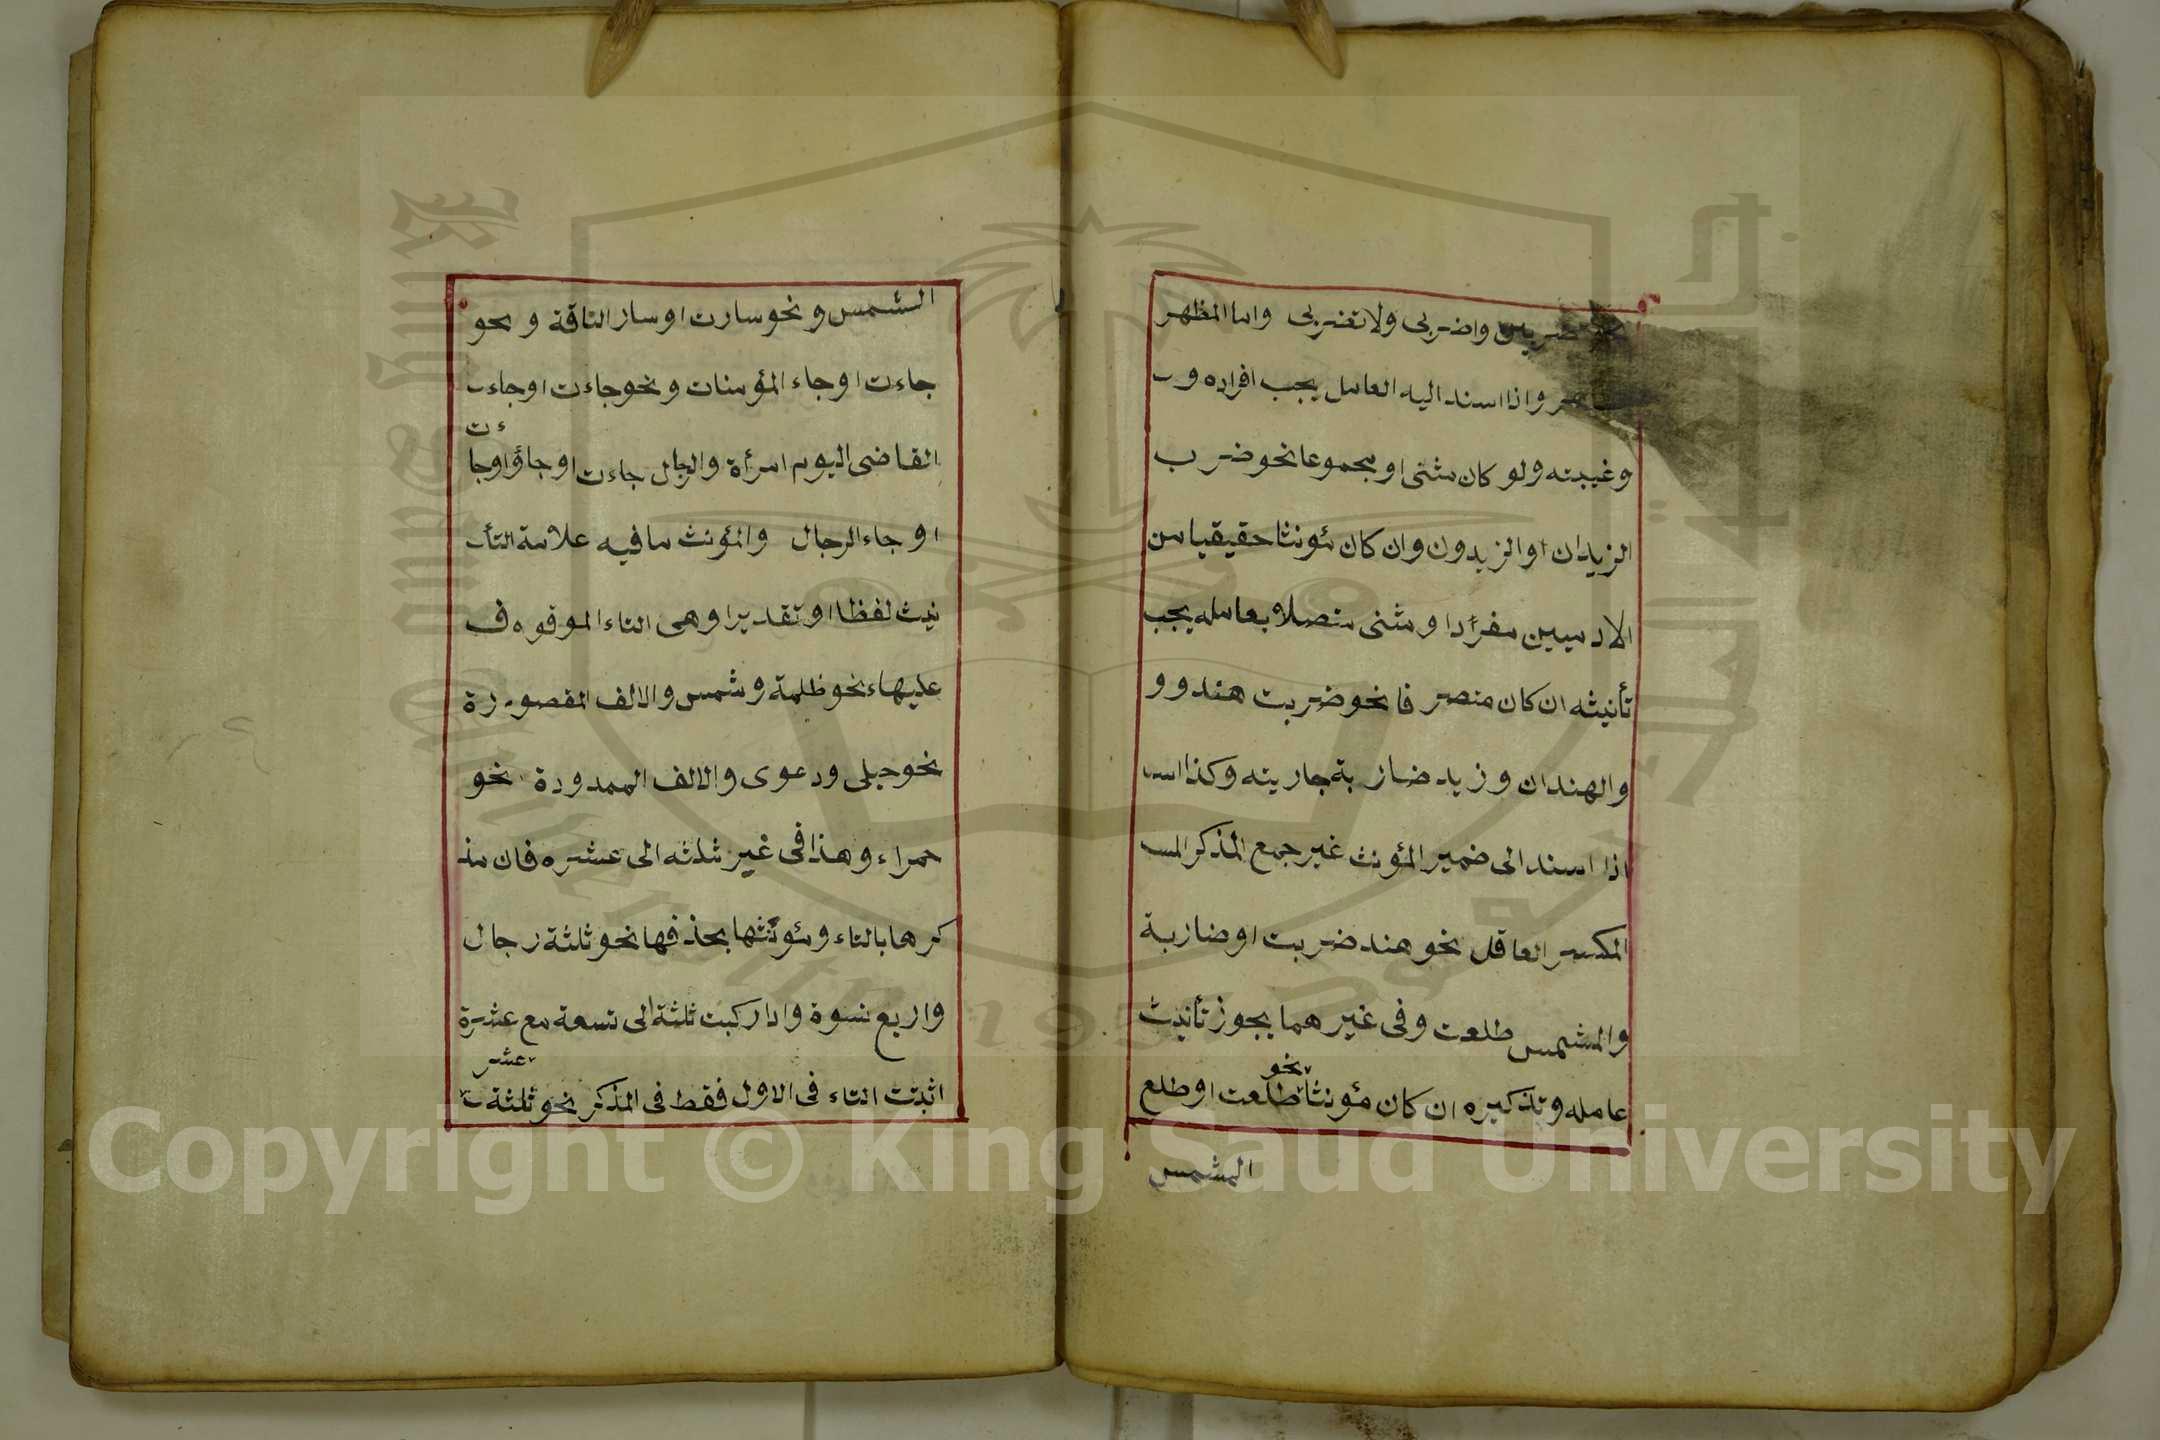 تضربين واضربى ولا تضربى واما المظهر
فظاهر واذا اسند اليه العامل يجب افراده و
وغيبته ولو كان مثنى او مجموعا نحو ضرب
الزيدان او الزيدون وان كان مؤنثا حقيقيا من
الادميين مفردا او مثنى متصلا بعامله يجب
تأنيثه ان كان منصرفا نحو ضربت هند و و
والهندان وزيد ضاربة جاريته وكذا اسـ
اذا اسند الى ضمير المؤنث غير جمع المذكر المـ
المكسر العاقل نحو هند ضربت او ضاربة
والشمس طلعت وفى غيرهما يجوز تأنيث
نحو
عامله وتذكيره ان كان مؤنثا طلعت او طلع
الشمس
الشمس ونحو سارت او سار الناقة ونحو
جاءت او جاء المؤمنات ونحو جاءت او جاء
ءت
القاضى اليوم امرأة والرجال جاءت او جاؤا وجا
او جاء الرجال والمؤنث ما فيه علامة التأ
نيث لفظا او تقديرا وهى التاء الموقوف
عليهاء نحو ظلمة وشمس والالف المقصورة
نحو حبلى ودعوى والالف الممدودة نحو
حمراء وهذا فى غير ثلثه الى عشره فان مذ
كرها بالتاء ومؤنثها بحذفها نحو ثلثة رجال
واربع نسوة واذا ركبت ثلثة الى تسعة مع عشرة
عشر
اثبتت التاء فى الاول فقط فى المذكر نحو ثلثة
Copyright © King Saud University